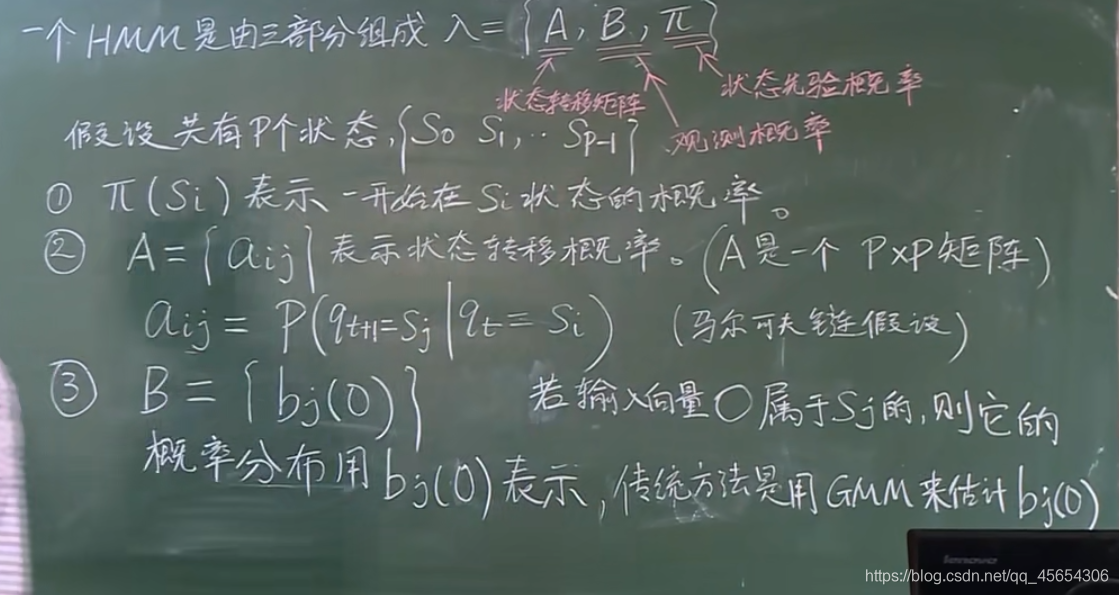 一个HMM是由三部分组成 λ={A, B, π}
状态转移矩阵
状态先验概率
观测概率
假设共有P个状态,{S0 S1,··Sp-1}
① π(Si)表示一开始在Si状态的概率。
② A={aij}表示状态转移概率。(A是一个P×P矩阵)
aij=P(qt+1=Sj|qt=Si) (马尔可夫链假设)
③ B={bj(O)} 若输入向量O属于Sj的,则它的
概率分布用bj(O)表示,传统方法是用GMM来估计bj(O)
lenovo
https://blog.csdn.net/qq_45654306